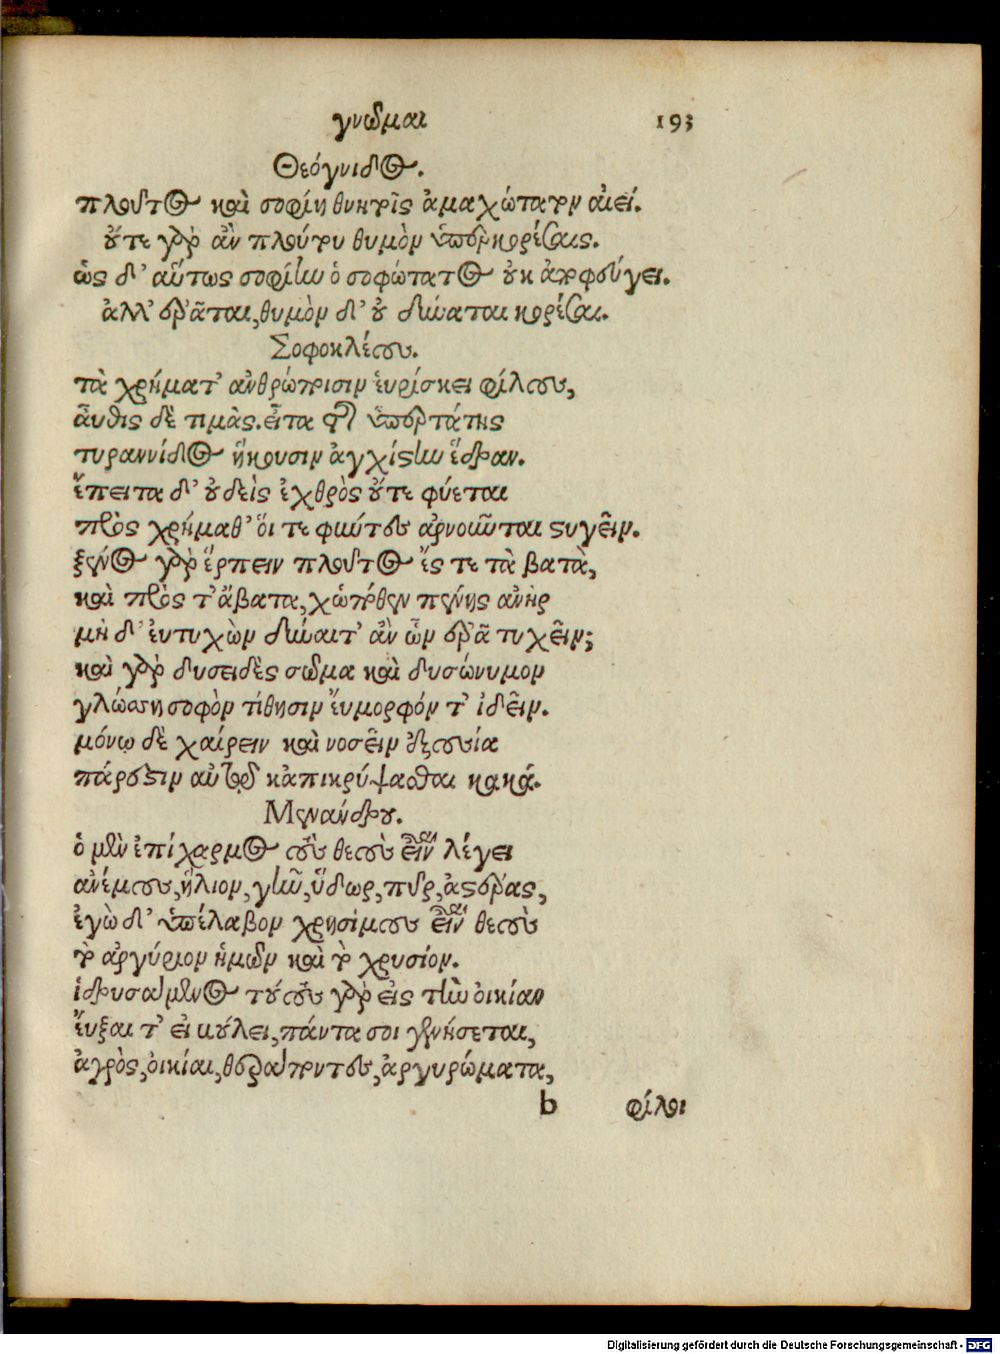 γνῶμαι 193
Θεόγνιδος.
πλοῦτος καὶ σοφίη θνητοῖς ἀμαχώτατον αἰεί.
οὔτε γὰρ ἂν πλούτου θυμὸν ὑπερκορέσαις.
ὡς δ' αὔτως σοφίην ὁ σοφώτατος οὐκ ἀποφεύγει.
ἀλλ' ἐρᾶται, θυμὸν δ' οὐ δύναται κορέσαι.
Σοφοκλέους.
τὰ χρήματ' ἀνθρώποισιν εὑρίσκει φίλους,
αὖθις δὲ τιμὰς. εἶτα τῆς ὑπερτάτης
τυραννίδος ἥκουσιν ἀγχίστην ἕδραν.
ἔπειτα δ' οὐδεὶς ἐχθρὸς οὔτε φύεται
πρὸς χρήμαθ' ὅι τε φύντες ἀρνοῦνται στυγεῖν.
ξένος γὰρ ἕρπειν πλοῦτος ἔς τε τὰ βατὰ,
καὶ πρὸς τ' ἄβατα, χὡπόθεν πένης ἀνὴρ
μὴ δ' ἐυτυχὼν δύναιτ' ἂν ὧν ἐρᾷ τυχεῖν;
καὶ γὰρ δυσειδὲς σῶμα καὶ δυσώνυμον
γλώσση σοφὸν τίθησιν ἔυμορφόν τ' ἰδεῖν.
μόνῳ δὲ χαίρειν καὶ νοσεῖν ἐξουσία
πάρεστιν αὐτῷ κἀπικρύψασθαι κακά.
Μενάνδρου.
ὁ μὲν ἐπίχαρμος τοὺς θεοὺς εἶναι λέγει
ἀνέμους, ἥλιον, γῆν, ὕδωρ, πῦρ, ἀστέρας,
ἐγὼ δ' ὑπέλαβον χρησίμους εἶναι θεοὺς
τὸ ἀργύριον ἡμῶν καὶ τὸ χρυσίον.
ἱδρυσάμενος τούτους γὰρ εἰς τὴν οἰκίαν
ἔυξαι τ' εἰ βούλει, πάντα σοι γενήσεται,
ἀγρὸς, οἰκίαι, θεράποντες, ἀργυρώματα,
b φίλοι
Digitalisierung gefördert durch die Deutsche Forschungsgemeinschaft - DFG